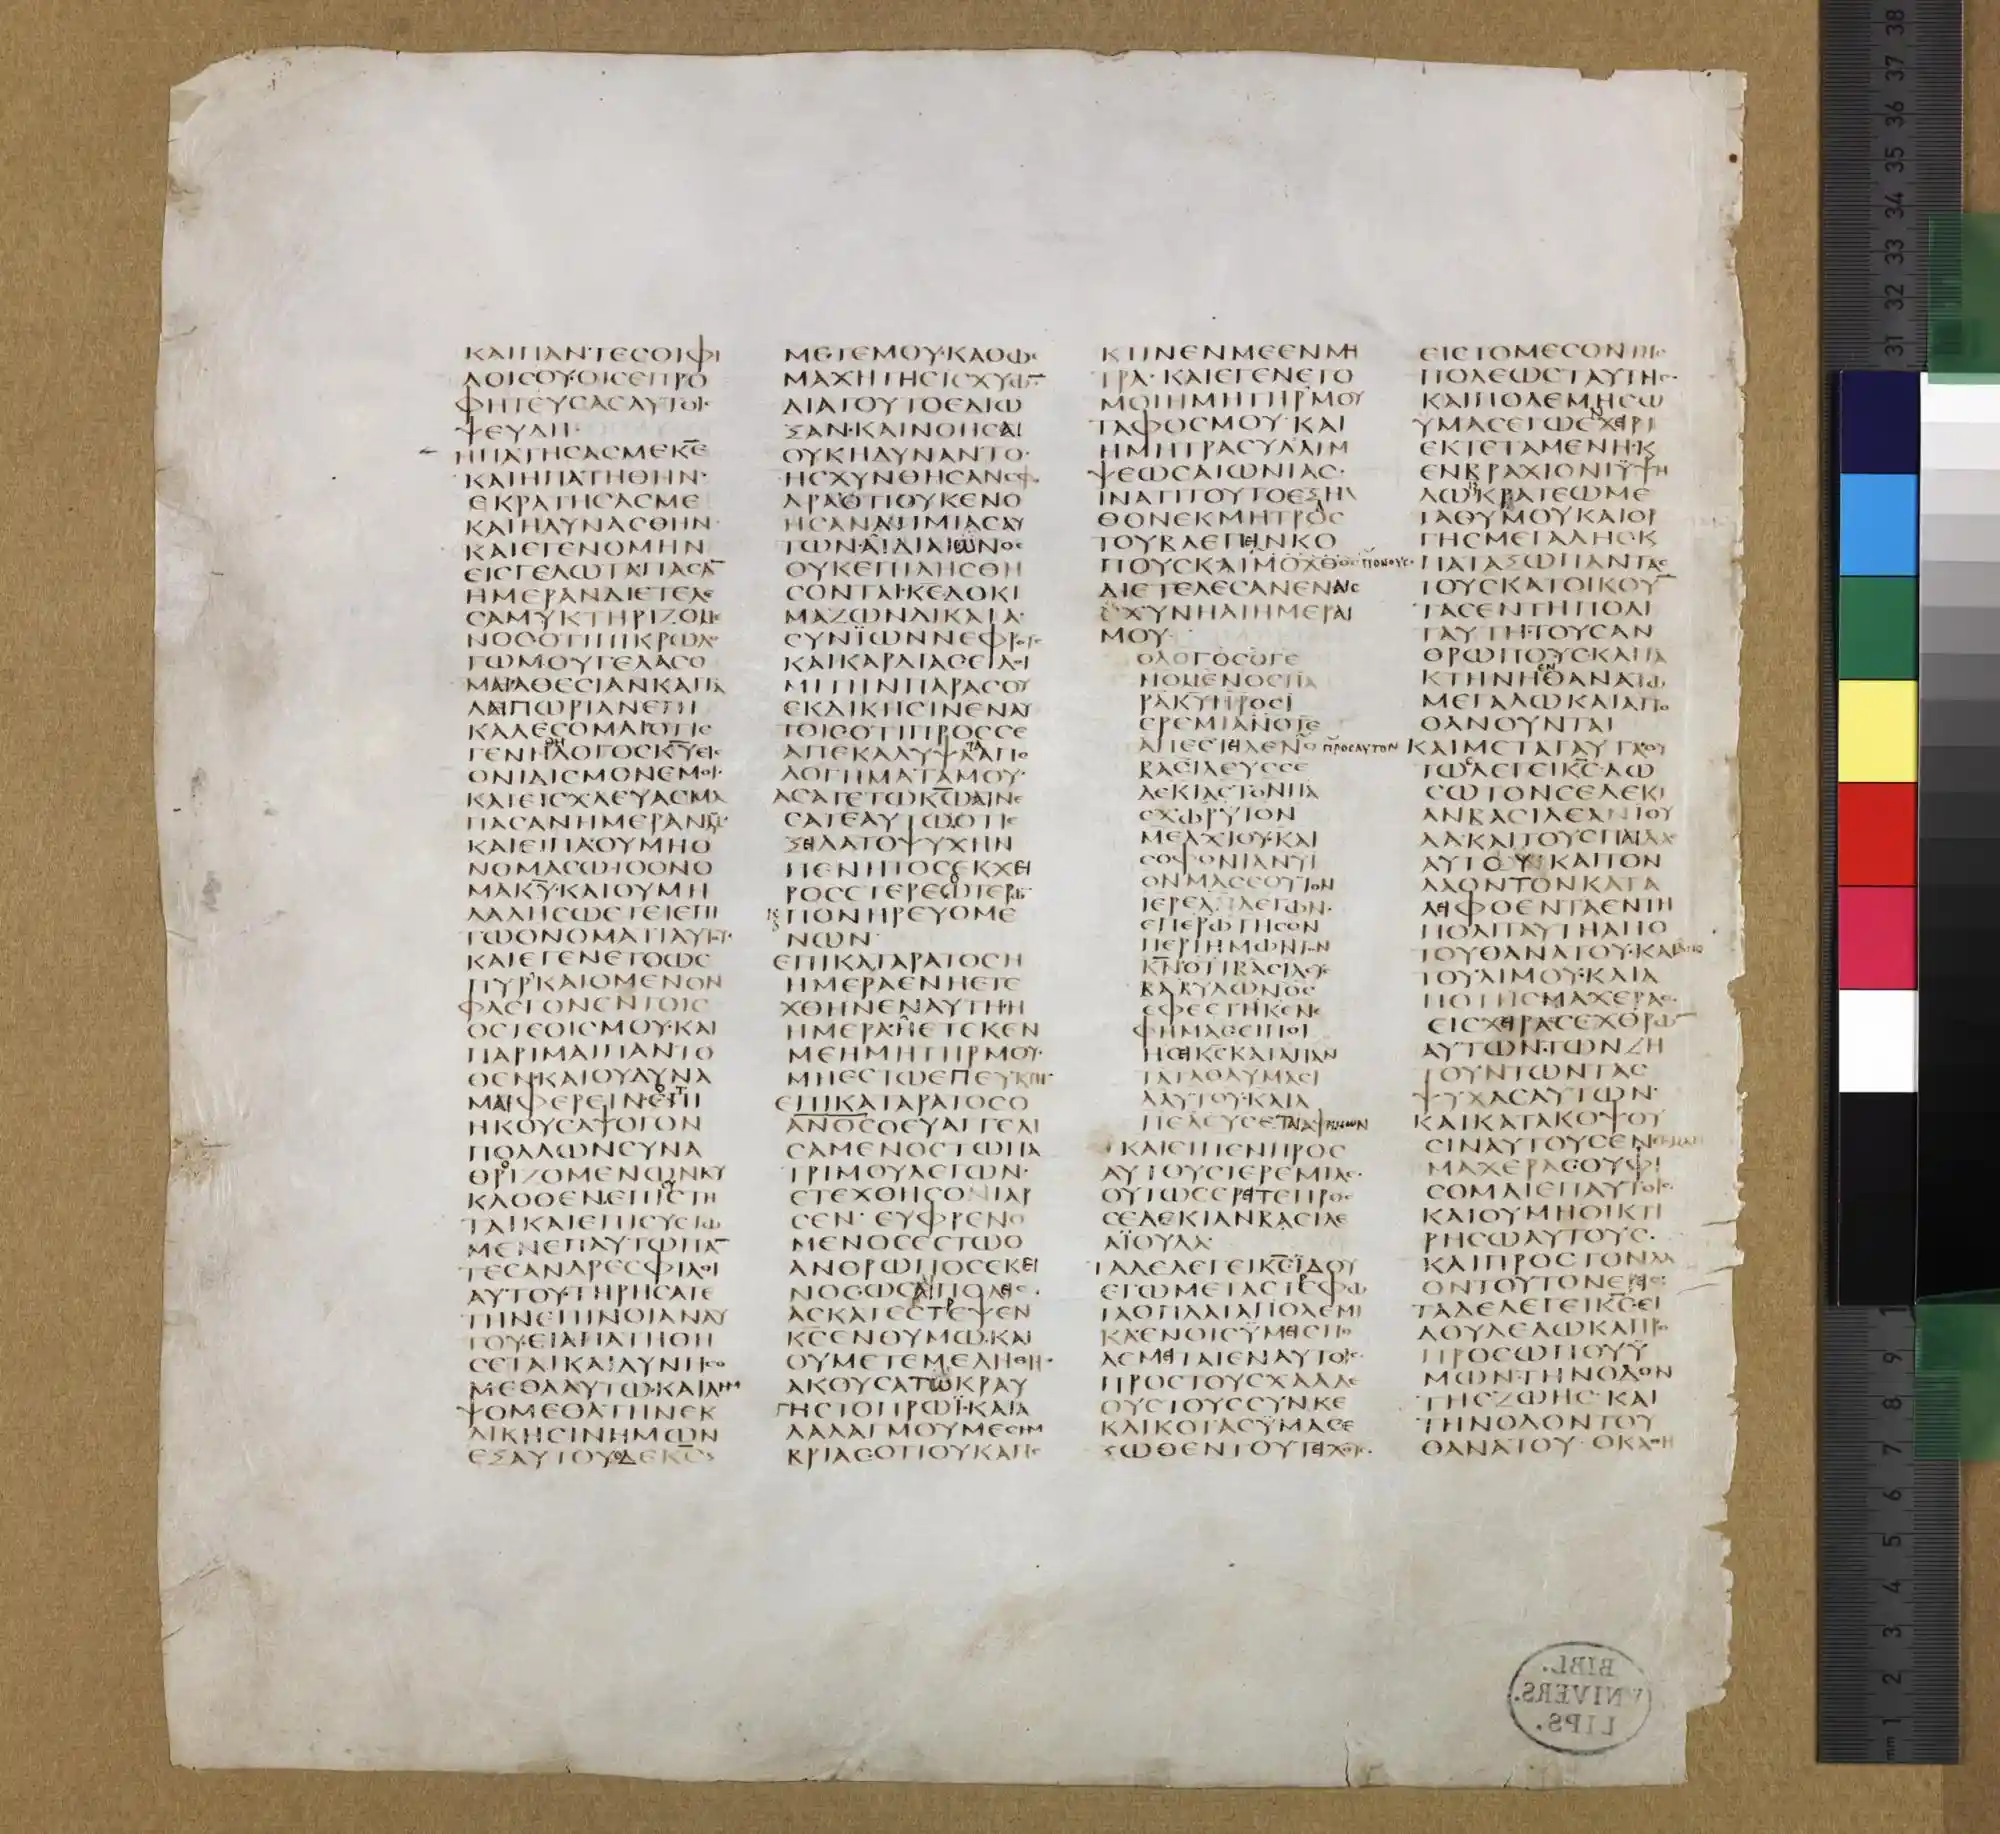 ΚΑΙΠΑΝΤΕϹΟΙΦΙ
ΛΟΙϹΟΥ·ΟΙϹΕΠΡΟ
ΦΗΤΕΥϹΑϹΑΥΤΟΙϹ
ΨΕΥΔΗ·
ΗΠΑΤΗϹΑϹΜΕΚΕ
ΚΑΙΗΠΑΤΗΘΗΝ·
ΕΚΡΑΤΗϹΑϹΜΕ
ΚΑΙΗΔΥΝΑϹΘΗΝ
ΚΑΙΕΓΕΝΟΜΗΝ
ΕΙϹΓΕΛΩΤΑΠΑϹΑ̅
ΗΜΕΡΑΝΔΙΕΤΕΛΕ
ϹΑΜΥΚΤΗΡΙΖΟΜΕ
ΝΟϹΟΤΙΠΙΚΡΩΛΟ
ΓΩΜΟΥΓΕΛΑϹΟ
ΜΑΙΑΘΕϹΙΑΝΚΑΙΤΑ
ΛΑΙΠΩΡΙΑΝΕΠΙ
ΚΑΛΕϹΟΜΑΙΟΤΙΕ
ΓΕΝΗΛΟΓΟϹΚ̅Υ̅ΕΙϹ
ΟΝΙΔΙϹΜΟΝΕΜΟΙ·
ΚΑΙΕΙϹΧΛΕΥΑϹΜΑ
ΠΑϹΑΝΗΜΕΡΑΝΜΟΥ
ΚΑΙΕΙΠΑΟΥΜΗΟ
ΝΟΜΑϹΩΤΟΟΝΟ
ΜΑΚ̅Υ̅·ΚΑΙΟΥΜΗ
ΛΑΛΗϹΩϹΕΤΕΙΕΠΙ
ΤΩΟΝΟΜΑΤΙΑΥΤΟΥ·
ΚΑΙΕΓΕΝΕΤΟΩϹ
ΠΥΡΚΑΙΟΜΕΝΟΝ
ΦΛΕΓΟΝΕΝΤΟΙϹ
ΟϹΤΕΟΙϹΜΟΥ·ΚΑΙ
ΠΑΡΙΜΑΙΠΑΝΤΟ
ΘΕΝ·ΚΑΙΟΥΔΥΝΑ
ΜΑΙΦΕΡΕΙΝ·ΟΤΙ
ΗΚΟΥϹΑΨΟΓΟΝ
ΠΟΛΛΩΝϹΥΝΑ
ΘΡΙΖΟΜΕΝΩΝΚΥ
ΚΛΟΘΕΝ·ΕΠΙϹΤΗ
ΤΑΙΚΑΙΕΠΙϹΥϹΤΩ
ΜΕΝΕΠΑΥΤΩΠΑ̅
ΤΕϹΑΝΔΡΕϹΦΙΛΟΙ
ΑΥΤΟΥ·ΤΗΡΗϹΑΤΕ
ΤΗΝΕΠΙΝΟΙΑΝΑΥ
ΤΟΥ·ΕΙΑΠΑΤΗΘΗ
ϹΕΤΑΙΚΑΙΔΥΝΗϹΟ
ΜΕΘΑΑΥΤΩ·ΚΑΙΛΗΜ
ΨΟΜΕΘΑΤΗΝΕΚ
ΔΙΚΗϹΙΝΗΜΩΝ
ΕΞΑΥΤΟΥΟΔΕΚ̅Ϲ̅
ΜΕΤΕΜΟΥ·ΚΑΘΩϹ
ΜΑΧΗΤΗϹΙϹΧΥΩ̅
ΔΙΑΤΟΥΤΟΕΔΙΩ
ΞΑΝ·ΚΑΙΝΟΗϹΑΙ
ΟΥΚΗΔΥΝΑΝΤΟ·
ΗϹΧΥΝΘΗϹΑΝϹΦΟ
ΔΡΑΟΤΙΟΥΚΕΝΟ
ΗϹΑΝΑΤΙΜΙΑϹΑΥ
ΤΩΝ·ΑΙΔΙΑΙΩΝΟϹ
ΟΥΚΕΠΙΛΗϹΘΗ
ϹΟΝΤΑΙ·Κ̅Ε̅ΔΟΚΙ
ΜΑΖΩΝΔΙΚΑΙΑ·
ϹΥΝΪΩΝΝΕΦΡΟΥϹ
ΚΑΙΚΑΡΔΙΑϹΕΙΔΟΙ
ΜΙΤΗΝΠΑΡΑϹΟΥ
ΕΚΔΙΚΗϹΙΝΕΝΑΥ
ΤΟΙϹΟΤΙΠΡΟϹϹΕ
ΑΠΕΚΑΛΥΨΑΑΠΟ
ΛΟΓΗΜΑΤΑΜΟΥ·
ΑϹΑΤΕΤΩΚ̅Ω̅ΑΙΝΕ
ϹΑΤΕΑΥΤΩΟΤΙΕ
ΞΕΙΛΑΤΟΨΥΧΗΝ
ΠΕΝΗΤΟϹΕΚΧΕΙ
ΡΟϹϹΤΕΡΕΩΤΕΡΩ
ΠΟΝΗΡΕΥΟΜΕ
ΝΩΝ
ΕΠΙΚΑΤΑΡΑΤΟϹΗ
ΗΜΕΡΑΕΝΗΕΤΕ
ΧΘΗΝΕΝΑΥΤΗ·Η
ΗΜΕΡΑΗΕΤΕΚΕΝ
ΜΕΗΜΗΤΗΡΜΟΥ·
ΜΗΕϹΤΩΕΠΕΥΚΤΗ·
ΕΠΙΚΑΤΑΡΑΤΟϹΟ
Α̅Ν̅Ο̅Ϲ̅ΟΕΥΑΓΓΕΛΙ
ϹΑΜΕΝΟϹΤΩΠΑ
ΤΡΙΜΟΥΛΕΓΩΝ·
ΕΤΕΧΘΗϹΟΙΑΡ
ϹΕΝ· ΕΥΦΡΕΝΟ
ΜΕΝΟϹΕϹΤΩΟ
ΑΝΘΡΩΠΟϹΕΚΕΙ
ΝΟϹΩϹΑΙΠΟΛΕΙϹ·
ΑϹΚΑΤΕϹΤΡΕΨΕΝ
Κ̅Ϲ̅ΕΝΘΥΜΩ·ΚΑΙ
ΟΥΜΕΤΕΜΕΛΗΘΗ·
ΑΚΟΥϹΑΤΩΚΡΑΥ
ΓΗϹΤΟΠΡΩΪ·ΚΑΙΑ
ΛΑΛΑΓΜΟΥΜΕϹΗΜ
ΒΡΙΑϹΟΤΙΟΥΚΑΠΕ
ΚΤΙΝΕΝΜΕΕΝΜΗ
ΤΡΑ· ΚΑΙΕΓΕΝΕΤΟ
ΜΟΙΗΜΗΤΗΡΜΟΥ
ΤΑΦΟϹΜΟΥ·ΚΑΙ
ΗΜΗΤΡΑϹΥΛΛΗΜ
ΨΕΩϹΑΙΩΝΙΑϹ·
ΙΝΑΤΙΤΟΥΤΟΕΞΗΛ
ΘΟΝΕΚΜΗΤΡΑϹ
ΤΟΥΒΛΕΠΕΙΝΚΟ
ΠΟΥϹΚΑΙΜΟΧΘΟΥϹ ΠΟΝΟΥϹ·
ΔΙΕΤΕΛΕϹΑΝΕΝΑΙϹ
ΧΥΝΗΑΙΗΜΕΡΑΙ
ΜΟΥ·
ΟΛΟΓΟϹΟΓΕ
ΝΟΜΕΝΟϹΠΑ
ΡΑΚ̅Υ̅ΠΡΟϹΙ
ΕΡΕΜΙΑΝΟΤΕ
ΑΠΕϹΤΕΙΛΕΝΟ ΠΡΟϹΑΥΤΟΝ
ΒΑϹΙΛΕΥϹϹΕ
ΔΕΚΙΑϹΤΟΝΠΑ
ϹΧΩΡΥΙΟΝ
ΜΕΛΧΙΟΥ·ΚΑΙ
ϹΟΦΟΝΙΑΝΥΙ
ΟΝΜΑϹϹΟΥΤΟΝ
ΙΕΡΕΑΛΕΓΩΝ·
ΕΠΕΡΩΤΗϹΟΝ
ΠΕΡΙΗΜΩΝΤΟΝ
Κ̅Ν̅ΟΤΙΒΑϹΙΛΕΥϹ
ΒΑΒΥΛΩΝΟϹ
ΕΦΕϹΤΗΚΕΝΕ
ΦΗΜΑϹΕΙΠΟΙ
ΗϹΕΙΚ̅Ϲ̅ΚΑΤΑΠΑΝ
ΤΑΤΑΘΑΥΜΑϹΙ
ΑΑΥΤΟΥ·ΚΑΙΑ
ΠΕΛΕΥϹΕΤΑΙΑΦΗΜΩΝ
ΚΑΙΕΙΠΕΝΠΡΟϹ
ΑΥΤΟΥϹΙΕΡΕΜΙΑϹ·
ΟΥΤΩϹΕΡΕΙΤΕΠΡΟϹ
ϹΕΔΕΚΙΑΝΒΑϹΙΛΕ
ΑΪΟΥΔΑ·
ΤΑΔΕΛΕΓΕΙΚ̅Ϲ̅ΪΔΟΥ
ΕΓΩΜΕΤΑϹΤΡΕΦΩ
ΤΑΟΠΛΑΤΑΠΟΛΕΜΙ
ΚΑΕΝΟΙϹΫΜΕΙϹΠΟ
ΛΕΜΕΙΤΑΙΕΝΑΥΤΟΙϹ·
ΠΡΟϹΤΟΥϹΧΑΛΔΕ
ΟΥϹΤΟΥϹϹΥΝΚΕ
ΚΛΙΚΟΤΑϹΫΜΑϹΕ
ΞΩΘΕΝΤΟΥΤΕΙΧΟΥϹ·
ΕΙϹΤΟΜΕϹΟΝΤΗϹ
ΠΟΛΕΩϹΤΑΥΤΗϹ·
ΚΑΙΠΟΛΕΜΗϹΩ
ΥΜΑϹΕΓΩΕΝΧΕΙΡΙ
ΕΚΤΕΤΑΜΕΝΗ·Κ
ΕΝΒΡΑΧΙΟΝΙΫΨΗ
ΛΩΚΡΑΤΕΩΜΕ
ΤΑΘΥΜΟΥΚΑΙΟΡ
ΓΗϹΜΕΓΑΛΗϹΚ
ΠΑΤΑΞΩΠΑΝΤΑϹ
ΤΟΥϹΚΑΤΟΙΚΟΥ̅
ΤΑϹΕΝΤΗΠΟΛΙ
ΤΑΥΤΗ·ΤΟΥϹΑΝ
ΘΡΩΠΟΥϹΚΑΙΤΑ
ΚΤΗΝΗΕΝΘΑΝΑΤΩ
ΜΕΓΑΛΩΚΑΙΑΠΟ
ΘΑΝΟΥΝΤΑΙ
ΚΑΙΜΕΤΑΤΑΥΤΑΟΥ
ΤΩϹΛΕΓΕΙΚ̅Ϲ̅·ΔΩ
ϹΩΤΟΝϹΕΔΕΚΙ
ΑΝΒΑϹΙΛΕΑΪΟΥ
ΔΑ·ΚΑΙΤΟΥϹΠΑΙΔΑϹ
ΑΥΤΟΥ·ΚΑΙΤΟΝ
ΛΑΟΝΤΟΝΚΑΤΑ
ΛΕΙΦΘΕΝΤΑΕΝΤΗ
ΠΟΛΙΤΑΥΤΗΑΠΟ
ΤΟΥΘΑΝΑΤΟΥ·ΚΑΙΑΠΟ
ΤΟΥΛΙΜΟΥ·ΚΑΙΑ
ΠΟΤΗϹΜΑΧΕΡΑϹ·
ΕΙϹΧΕΙΡΑϹΕΧΘΡΩ̅
ΑΥΤΩΝ·ΤΩΝΖΗ
ΤΟΥΝΤΩΝΤΑϹ
ΨΥΧΑϹΑΥΤΩΝ·
ΚΑΙΚΑΤΑΚΟΨΟΥ
ϹΙΝΑΥΤΟΥϹΕΝ
ΜΑΧΕΡΑϹΟΥΦΙ
ϹΟΜΑΙΕΠΑΥΤΟΙϹ·
ΚΑΙΟΥΜΗΟΙΚΤΙ
ΡΗϹΩΑΥΤΟΥϹ·
ΚΑΙΠΡΟϹΤΟΝΛΑ
ΟΝΤΟΥΤΟΝΕΡΕΙϹ·
ΤΑΔΕΛΕΓΕΙΚ̅Ϲ̅ΕΙ
ΔΟΥΔΕΔΩΚΑΠΡΟ
ΠΡΟϹΩΠΟΥΫ
ΜΩΝ·ΤΗΝΟΔΟΝ
ΤΗϹΖΩΗϹ· ΚΑΙ
ΤΗΝΟΔΟΝΤΟΥ
ΘΑΝΑΤΟΥ· ΟΚΑΘΗ
BIBL.
VNIVERS.
LIPS.